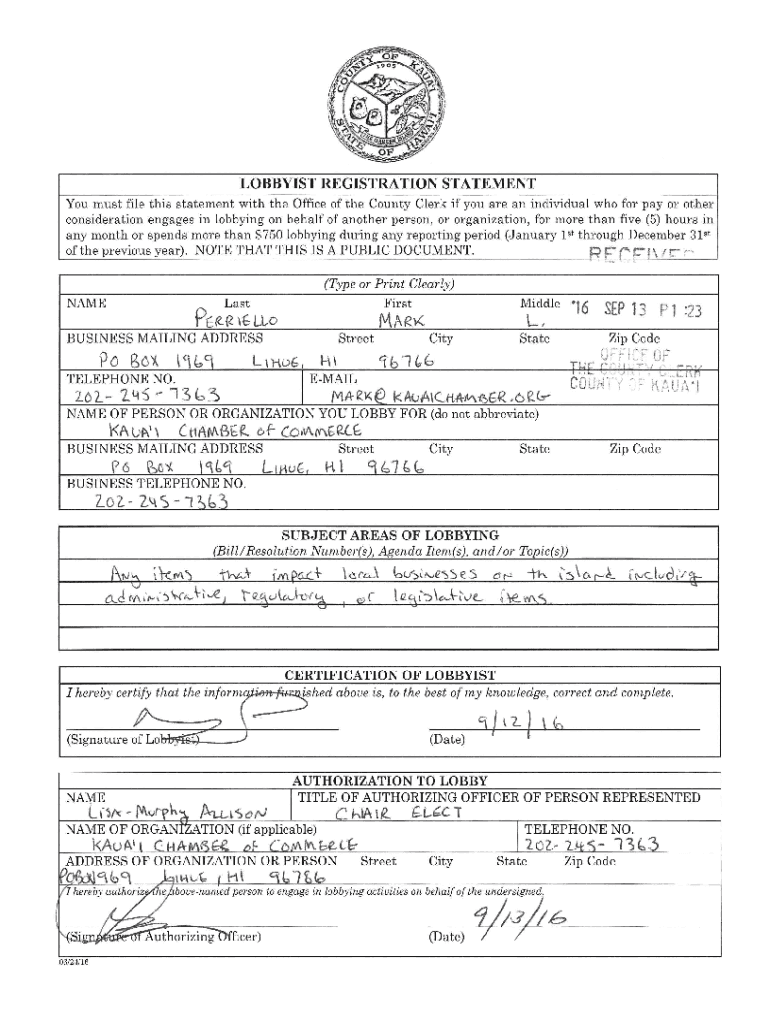 COUNTY OF KAUA'I
1905
STATE OF HAWAI'I
LOBBYIST REGISTRATION STATEMENT
You must file this statement with the Office of the County Clerk if you are an individual who for pay or other
consideration engages in lobbying on behalf of another person, or organization, for more than five (5) hours in
any month or spends more than $750 lobbying during any reporting period (January 1st through December 31st
of the previous year). NOTE THAT THIS IS A PUBLIC DOCUMENT.
RECEIVED
(Type or Print Clearly)
NAME Last First Middle
PERRIELLO MARK L.
'16 SEP 13 P1:23
BUSINESS MAILING ADDRESS Street City State Zip Code
PO BOX 1969 LIHUE, HI 96766
OFFICE OF
THE COUNTY CLERK
COUNTY OF KAUA'I
TELEPHONE NO. E-MAIL
202-245-7363 MARK@KAUAICHAMBER.ORG
NAME OF PERSON OR ORGANIZATION YOU LOBBY FOR (do not abbreviate)
KAUA'I CHAMBER OF COMMERCE
BUSINESS MAILING ADDRESS Street City State Zip Code
PO BOX 1969 LIHUE, HI 96766
BUSINESS TELEPHONE NO.
202-245-7363
SUBJECT AREAS OF LOBBYING
(Bill/Resolution Number(s), Agenda Item(s), and/or Topic(s))
Any items that impact local businesses on th island including
administrative, regulatory, or legislative items.
CERTIFICATION OF LOBBYIST
I hereby certify that the information furnished above is, to the best of my knowledge, correct and complete.
9/12/16
(Signature of Lobbyist) (Date)
AUTHORIZATION TO LOBBY
NAME TITLE OF AUTHORIZING OFFICER OF PERSON REPRESENTED
LISA-Murphy ALLISON CHAIR ELECT
NAME OF ORGANIZATION (if applicable) TELEPHONE NO.
KAUA'I CHAMBER OF COMMERCE 202-245-7363
ADDRESS OF ORGANIZATION OR PERSON Street City State Zip Code
PO BOX 1969 LIHUE, HI 96786
I hereby authorize the above-named person to engage in lobbying activities on behalf of the undersigned.
9/13/16
(Signature of Authorizing Officer) (Date)
03/24/16